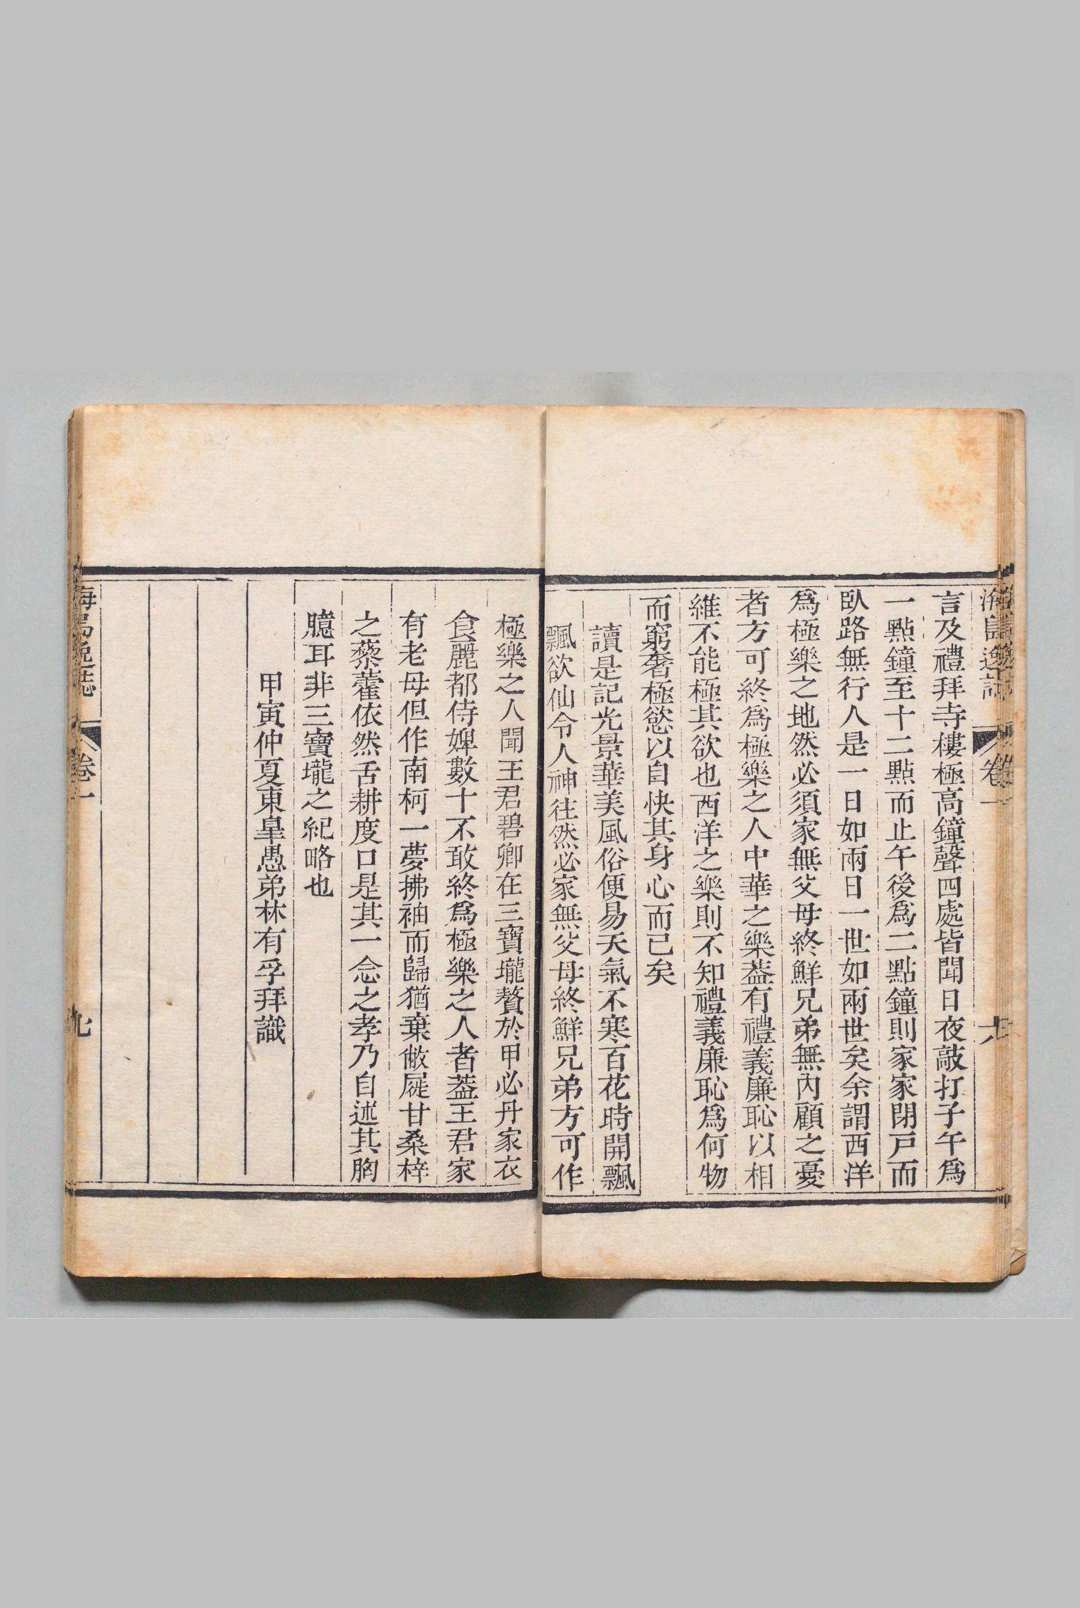 言及禮拜寺樓極高鐘聲四處皆聞日夜敲打子午爲
一點鐘至十二點而止午後爲二點鐘則家家閉戸而
臥路無行人是一日如兩日一世如兩世矣余謂西洋
爲極樂之地然必須家無父母終鮮兄弟無內顧之憂
者方可終爲極樂之人中華之樂葢有禮義廉恥以相
維不能極其欲也西洋之樂則不知禮義廉恥爲何物
而窮奢極慾以自快其身心而已矣
讀是記光景華美風俗便易天氣不寒百花時開飄
飄欲仙令人神往然必家無父母終鮮兄弟方可作
極樂之人聞王君碧卿在三寶壠贅於甲必丹家衣
食麗都侍婢數十不敢終爲極樂之人者葢王君家
有老母但作南柯一夢拂袖而歸猶棄敝屣甘桑梓
之藜藿依然舌耕度口是其一念之孝乃自述其胸
臆耳非三寶壠之紀略也
甲寅仲夏東臯愚弟林有孚拜識
海島逸誌
卷一
九